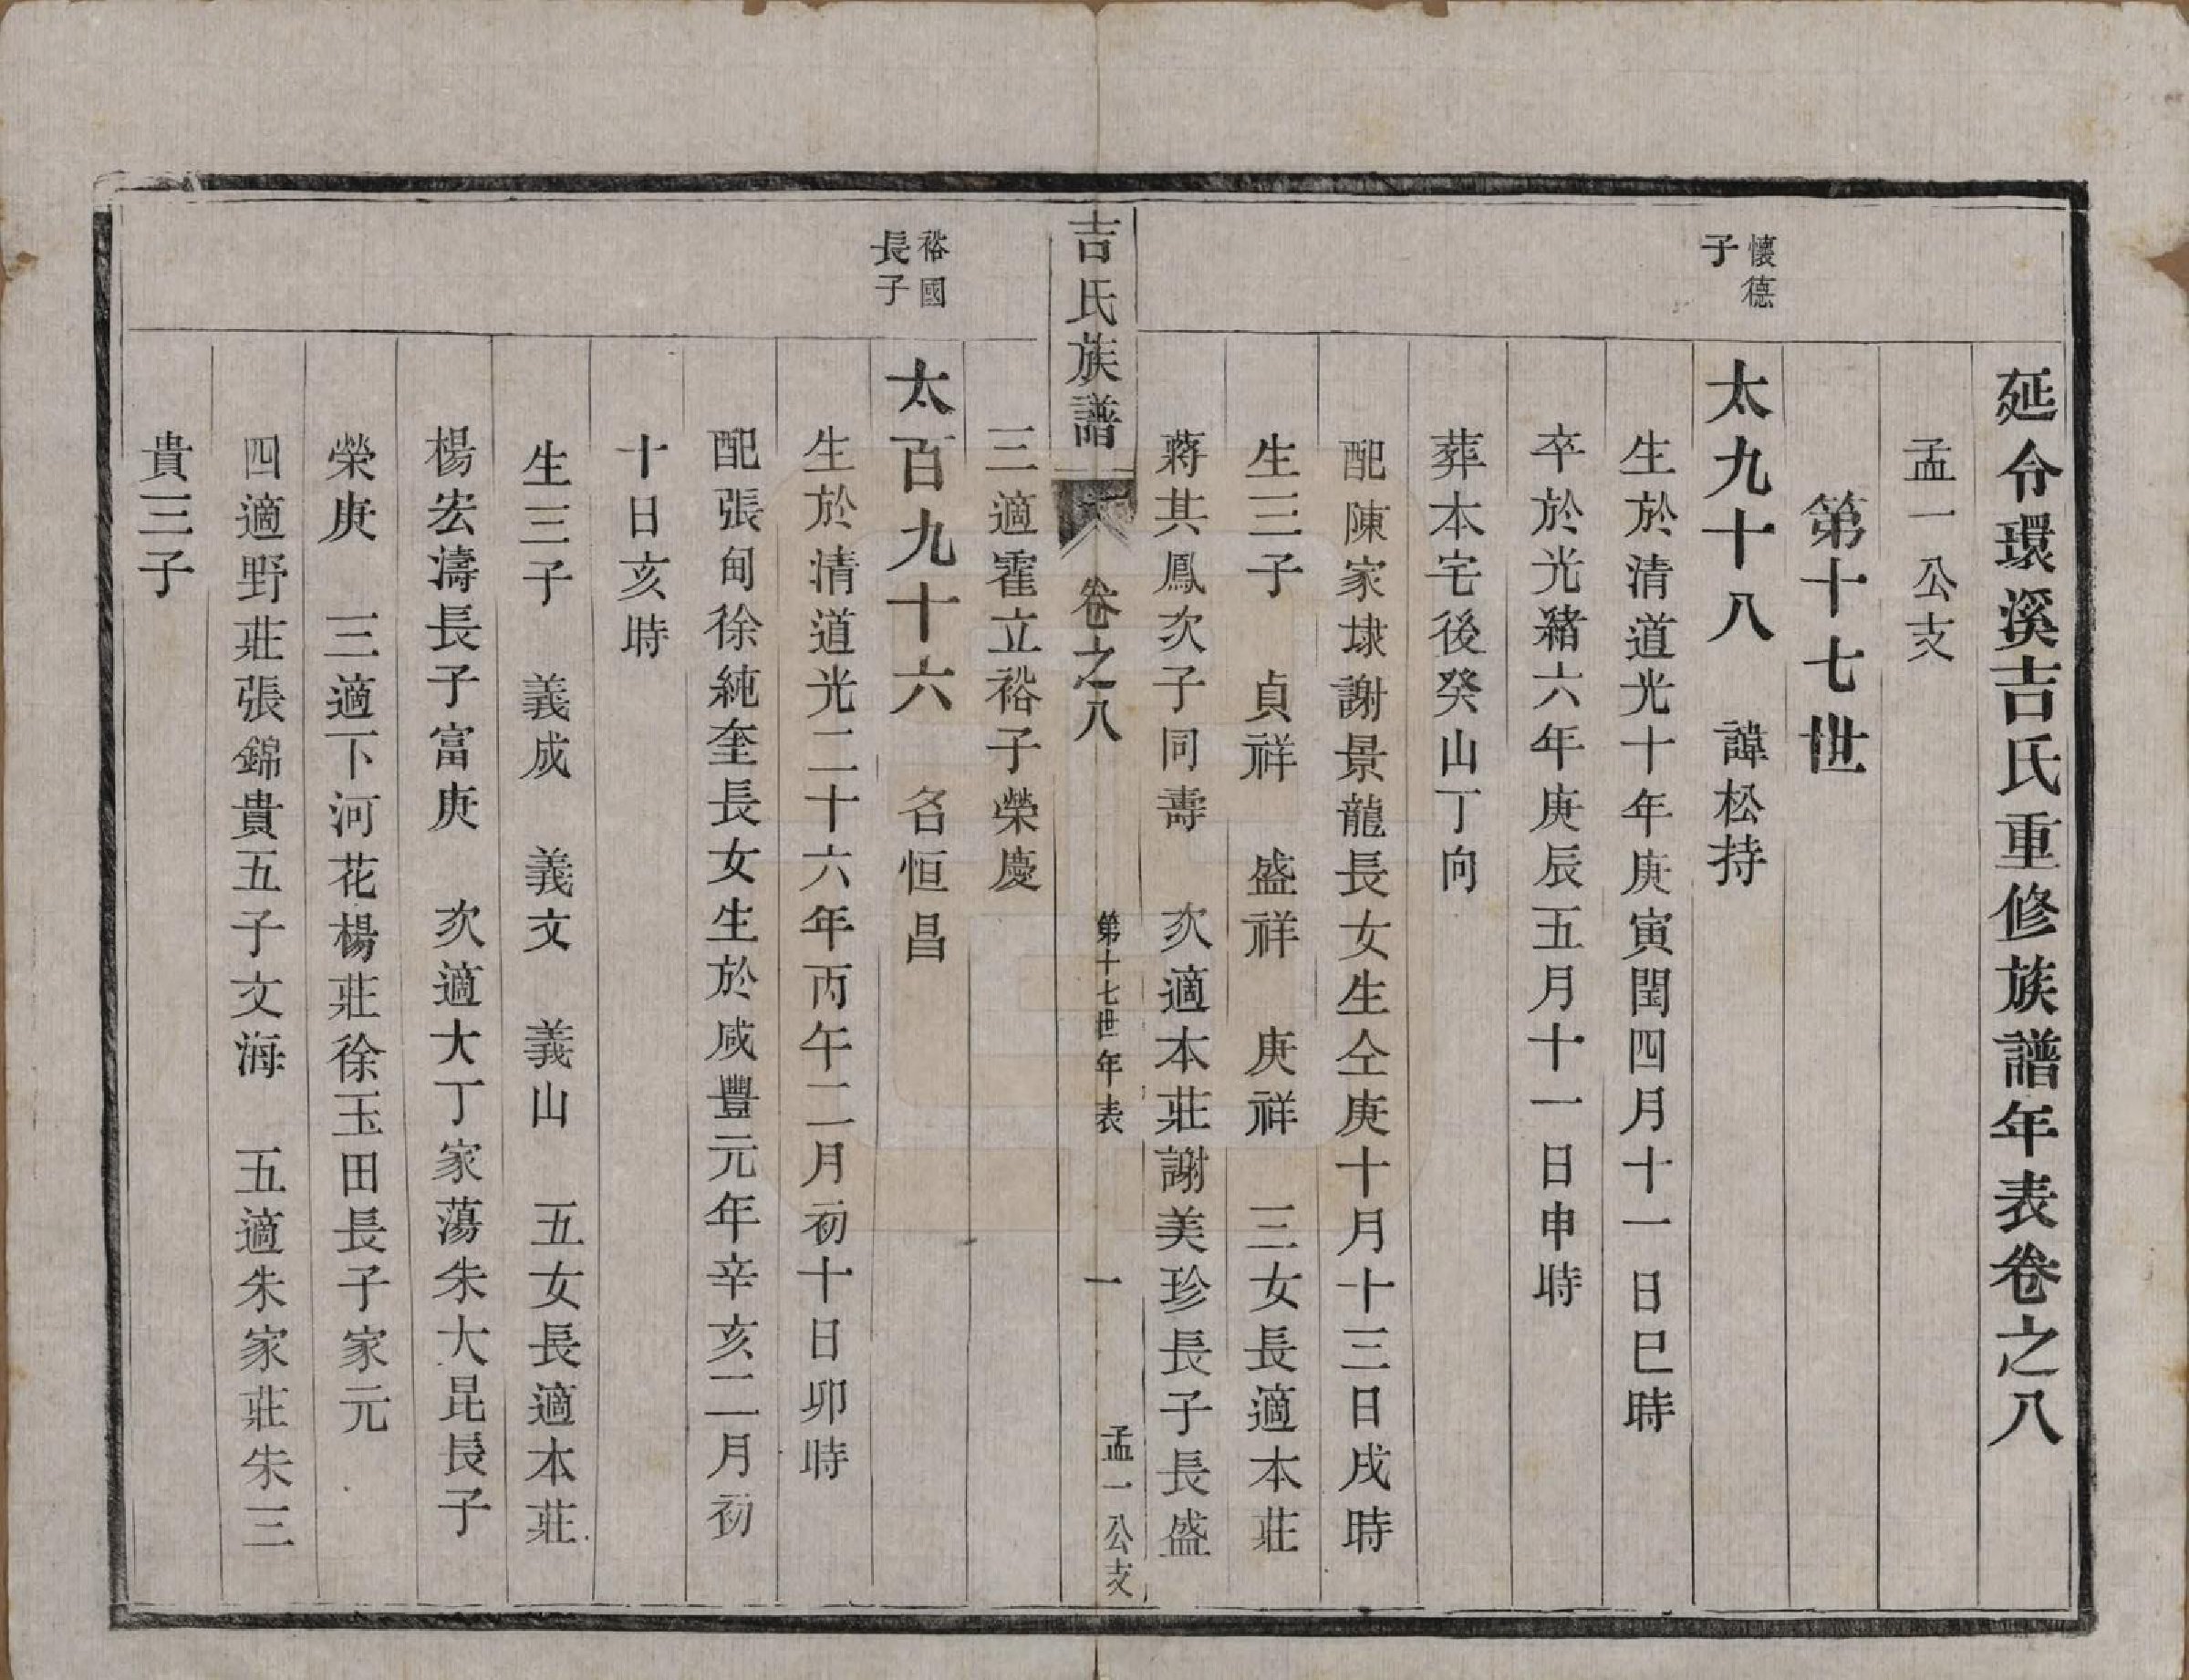 延令環溪吉氏重修族譜年表卷之八
孟一公支
第十七世
懷德
子
太九十八　諱松持
生於清道光十年庚寅閏四月十一日巳時
卒於光緒六年庚辰五月十一日申時
葬本宅後癸山丁向
配陳家埭謝景龍長女生仝庚十月十三日戌時
生三子　貞祥　盛祥　庚祥　三女長適本莊
蔣其鳳次子同壽　次適本莊謝美珍長子長盛
吉氏族譜　卷之八　第十七世年表　一　孟一公支
三適霍立裕子榮慶
裕國
長子
太百九十六　名恒昌
生於清道光二十六年丙午二月初十日卯時
配張甸徐純奎長女生於咸豐元年辛亥二月初
十日亥時
生三子　義成　義文　義山　五女長適本莊
楊宏濤長子富庚　次適大丁家蕩朱大昆長子
榮庚　三適下河花楊莊徐玉田長子家元
四適野莊張錦貴五子文海　五適朱家莊朱三
貴三子